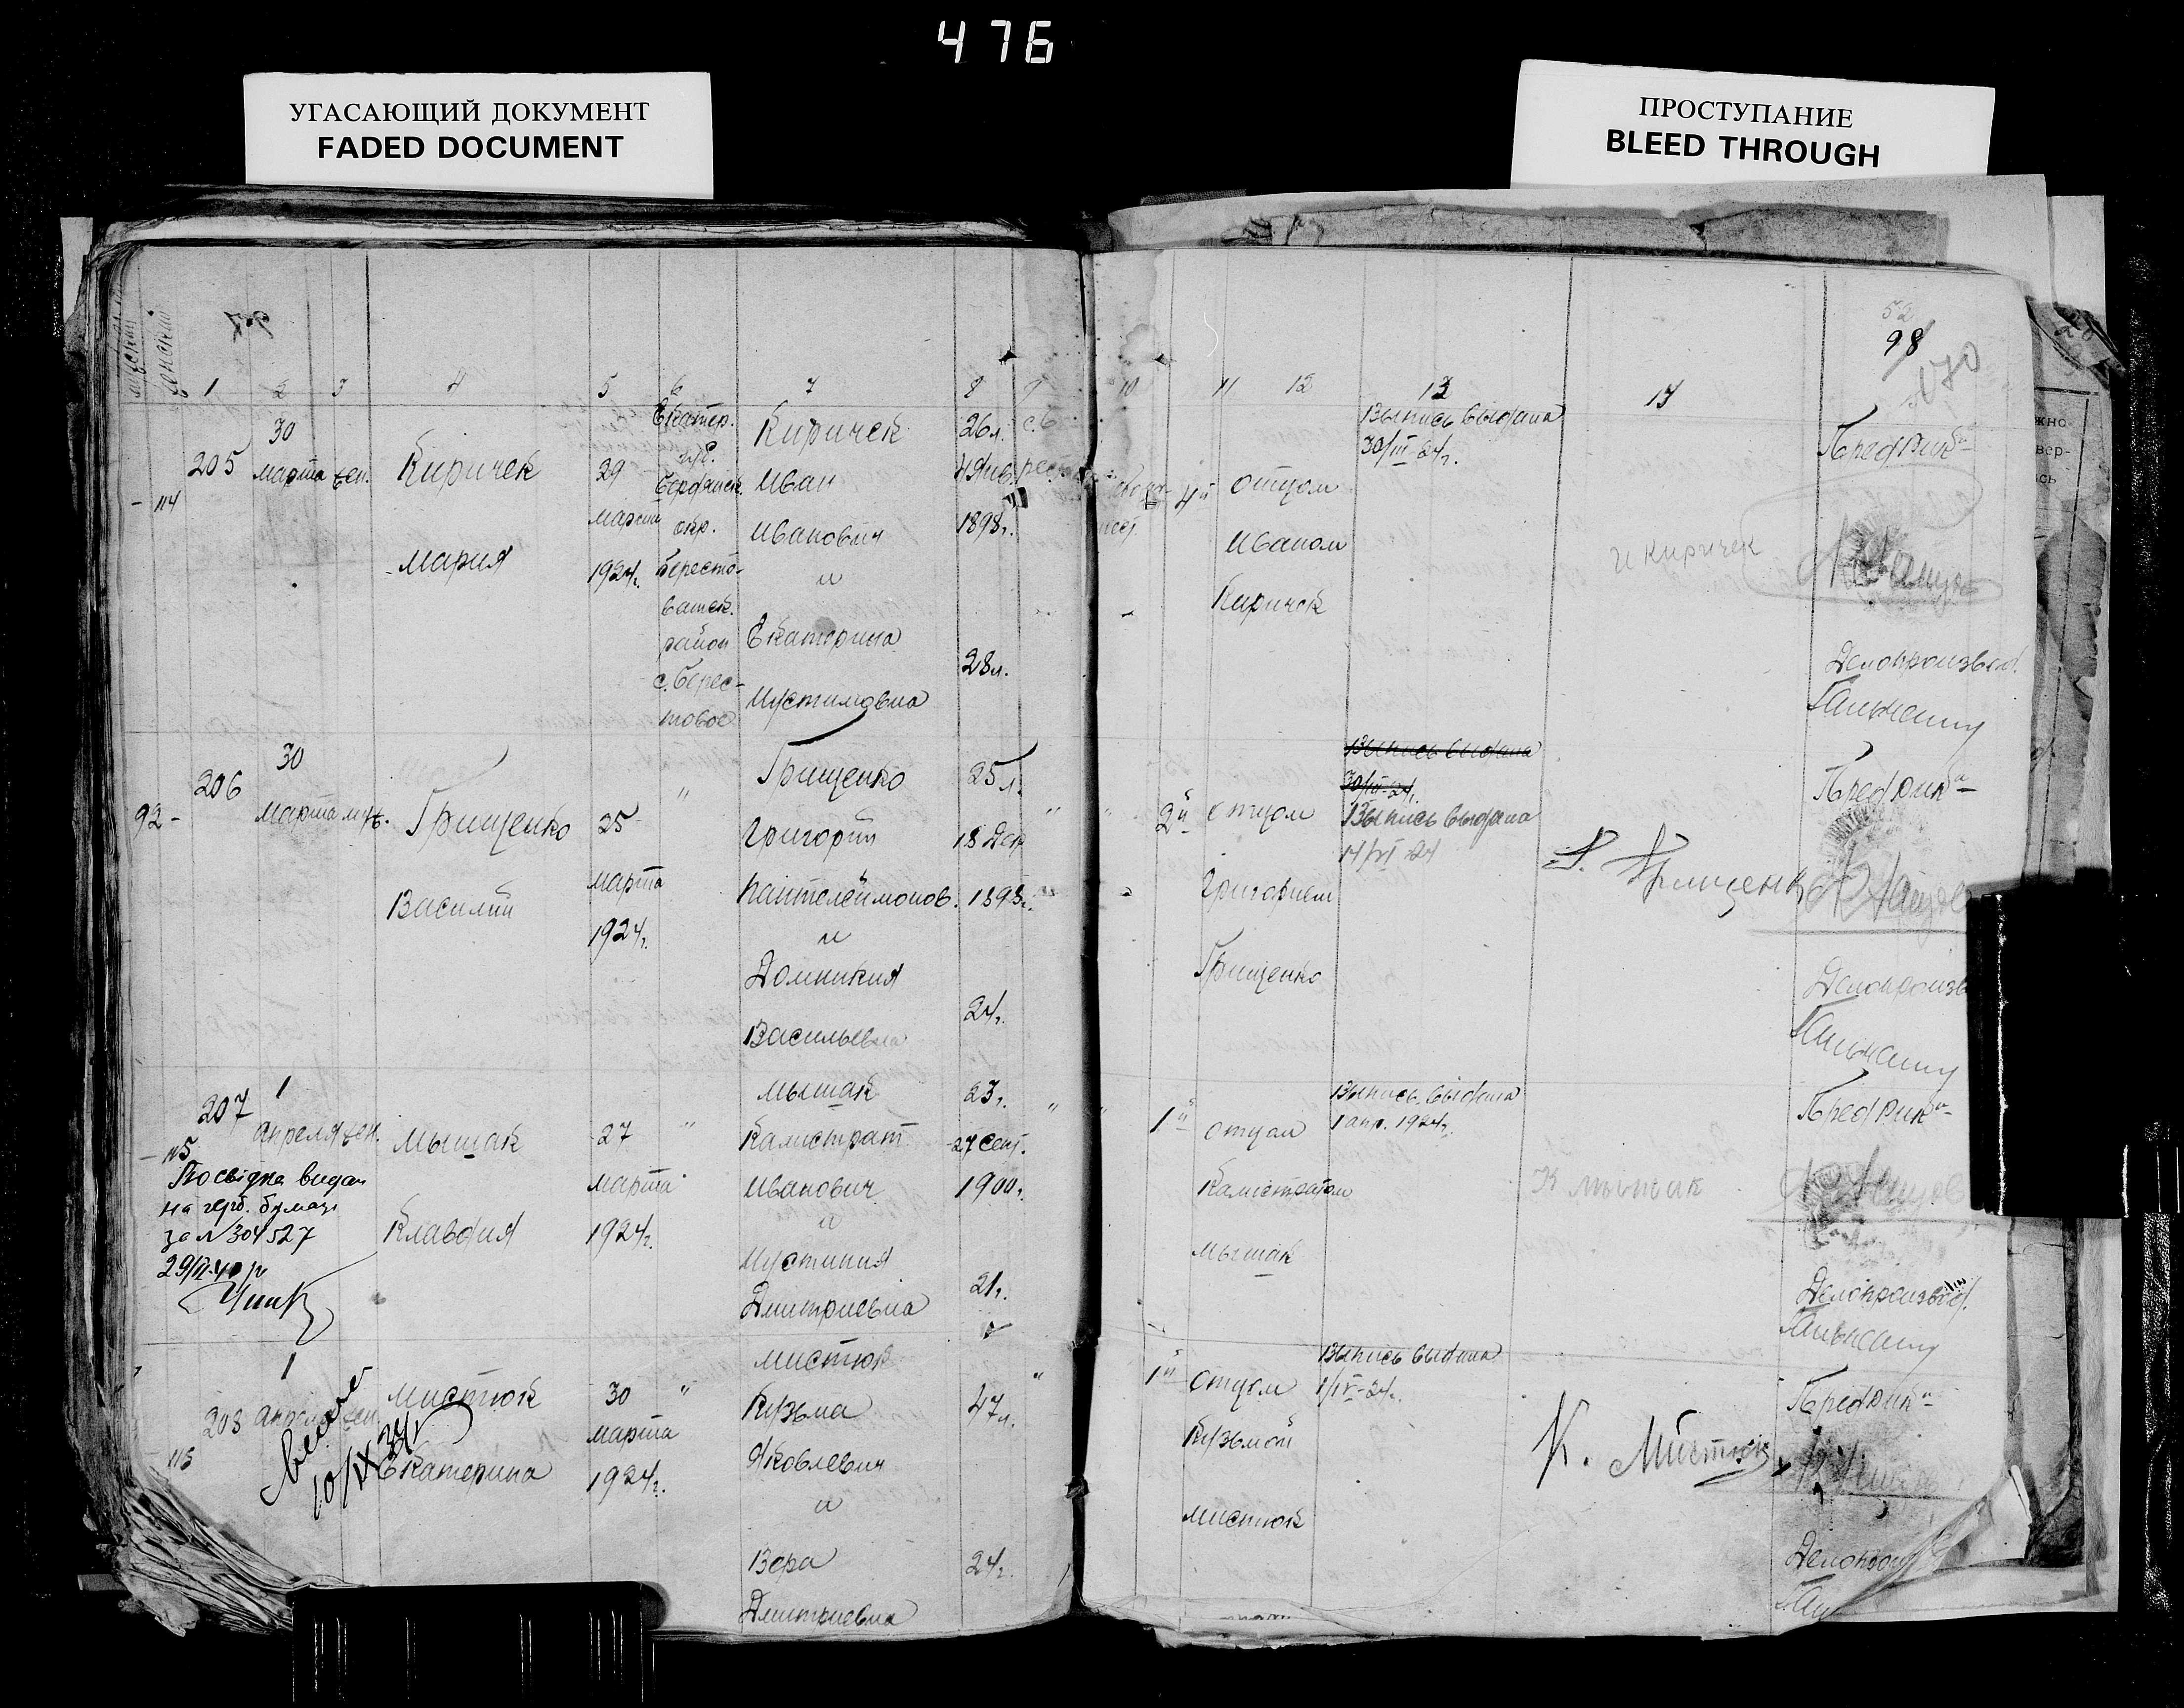 476
УГАСАЮЩИЙ ДОКУМЕНТ
FADED DOCUMENT
ПРОСТУПАНИЕ
BLEED THROUGH
мужский
женский
97
52
98
170
1 2 3 4 5 6 7 8 9 10 11 12 13
205
114
30
марта жен.
Киричек
Мария
29
марта
1924г.
Екатер.
губ.
Бердянск.
окр.
Бересто-
ватск.
район
с. Берес-
товое
Киричек
Иван
Иванович
и
Екатерина
Иустимовна
26 л.
4 Янв.
1898г.
28 л.
4й
отцом
Иваном
Киричек
Выпись выдана
30/III-24г.
И Киричек
Пред Рик-а
Делопроизвод.
206
92 -
30
Марта муж.
Грищенко
Василий
25
марта
1924г.
"
Грищенко
Григорий
Пантелеймонов.
и
Домникия
Васильевна
25 л.
18 Дек
1898г.
24г.
"
2й
отцом
Григорием
Грищенко
Выпись выдана
30/III-24г.
Выпись выдана
14/VI 24
Г. Грищенко
Пред Рик-а
Делопроизв
207
115
1
апреля жен.
Посвідка видан
на герб. бумазі
за N 304527
Мышак
Клавдия
27
марта
1924г.
"
Мышак
Калистрат
Иванович
и
Иустиния
Дмитриевна
23г.
27 Сент.
1900г.
21г.
"
1й
отцом
Калистратом
Мышак
Выпись выдана
1 апр. 1924г.
К мышак
Пред Рик-а
Делопроизвод.
208
1
апреля жен.
10/IX 34г
Мистюк
Екатерина
30
марта
1924г.
"
Мистюк
Кузьма
Яковлевич
и
Вера
Дмитриевна
47л.
24г.
"
1й
отцом
Кузьмой
Мистюк
Выпись выдана
1/IV-24г.
К. Мистюк
Пред Рик-а
жно-
вер-
сь